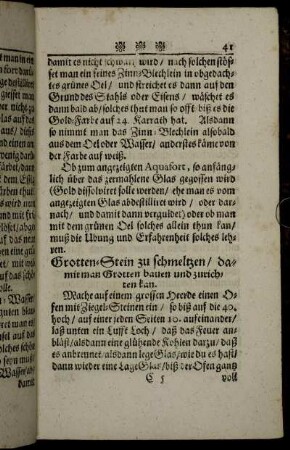 41
damit es nicht schwartz wird / nach solchen stös-
set man ein feines Zinn-Blechlein in obgedach-
tes grünes Oel / und streichet es dann auf den
Grund des Stahls oder Eisens / wäschet es
dann bald ab / solches thut man so offt biß es die
Gold-Farbe auf 24. Karrath hat. Alsdann
so nimmt man das Zinn-Blechlein alsobald
aus dem Oel oder Wasser / anderst es käme von
der Farbe auf weiß.
Ob zum angezeigten Aquafort, so anfäng-
lich über das zermahlene Glas gegossen wird
(Gold dissolvirt solle werden / ehe man es vom
angezeigten Glas abdestillirt wird / oder dar-
nach / und damit dann verguldet) oder ob man
mit dem grünen Oel solches allein thun kan /
muß die Ubung und Erfahrenheit solches leh-
ren.
Grotten-Stein zu schmeltzen / da-
mit man Grotten bauen und zurich-
ten kan.
Mache auf einem grossen Heerde einen O-
fen mit Ziegel-Steinen ein / so biß auf die 40.
hoch / auf einer jedem Seiten 10. aufeinander /
laß unten ein Lufft Loch / daß das Feuer an-
bläst / alsdann eine glühende Kohlen darzu / daß
es anbrennet / alsdann lege Glas / wie du es hast /
dann wieder eine Lage Glas / biß der Ofen gantz
C 5 voll